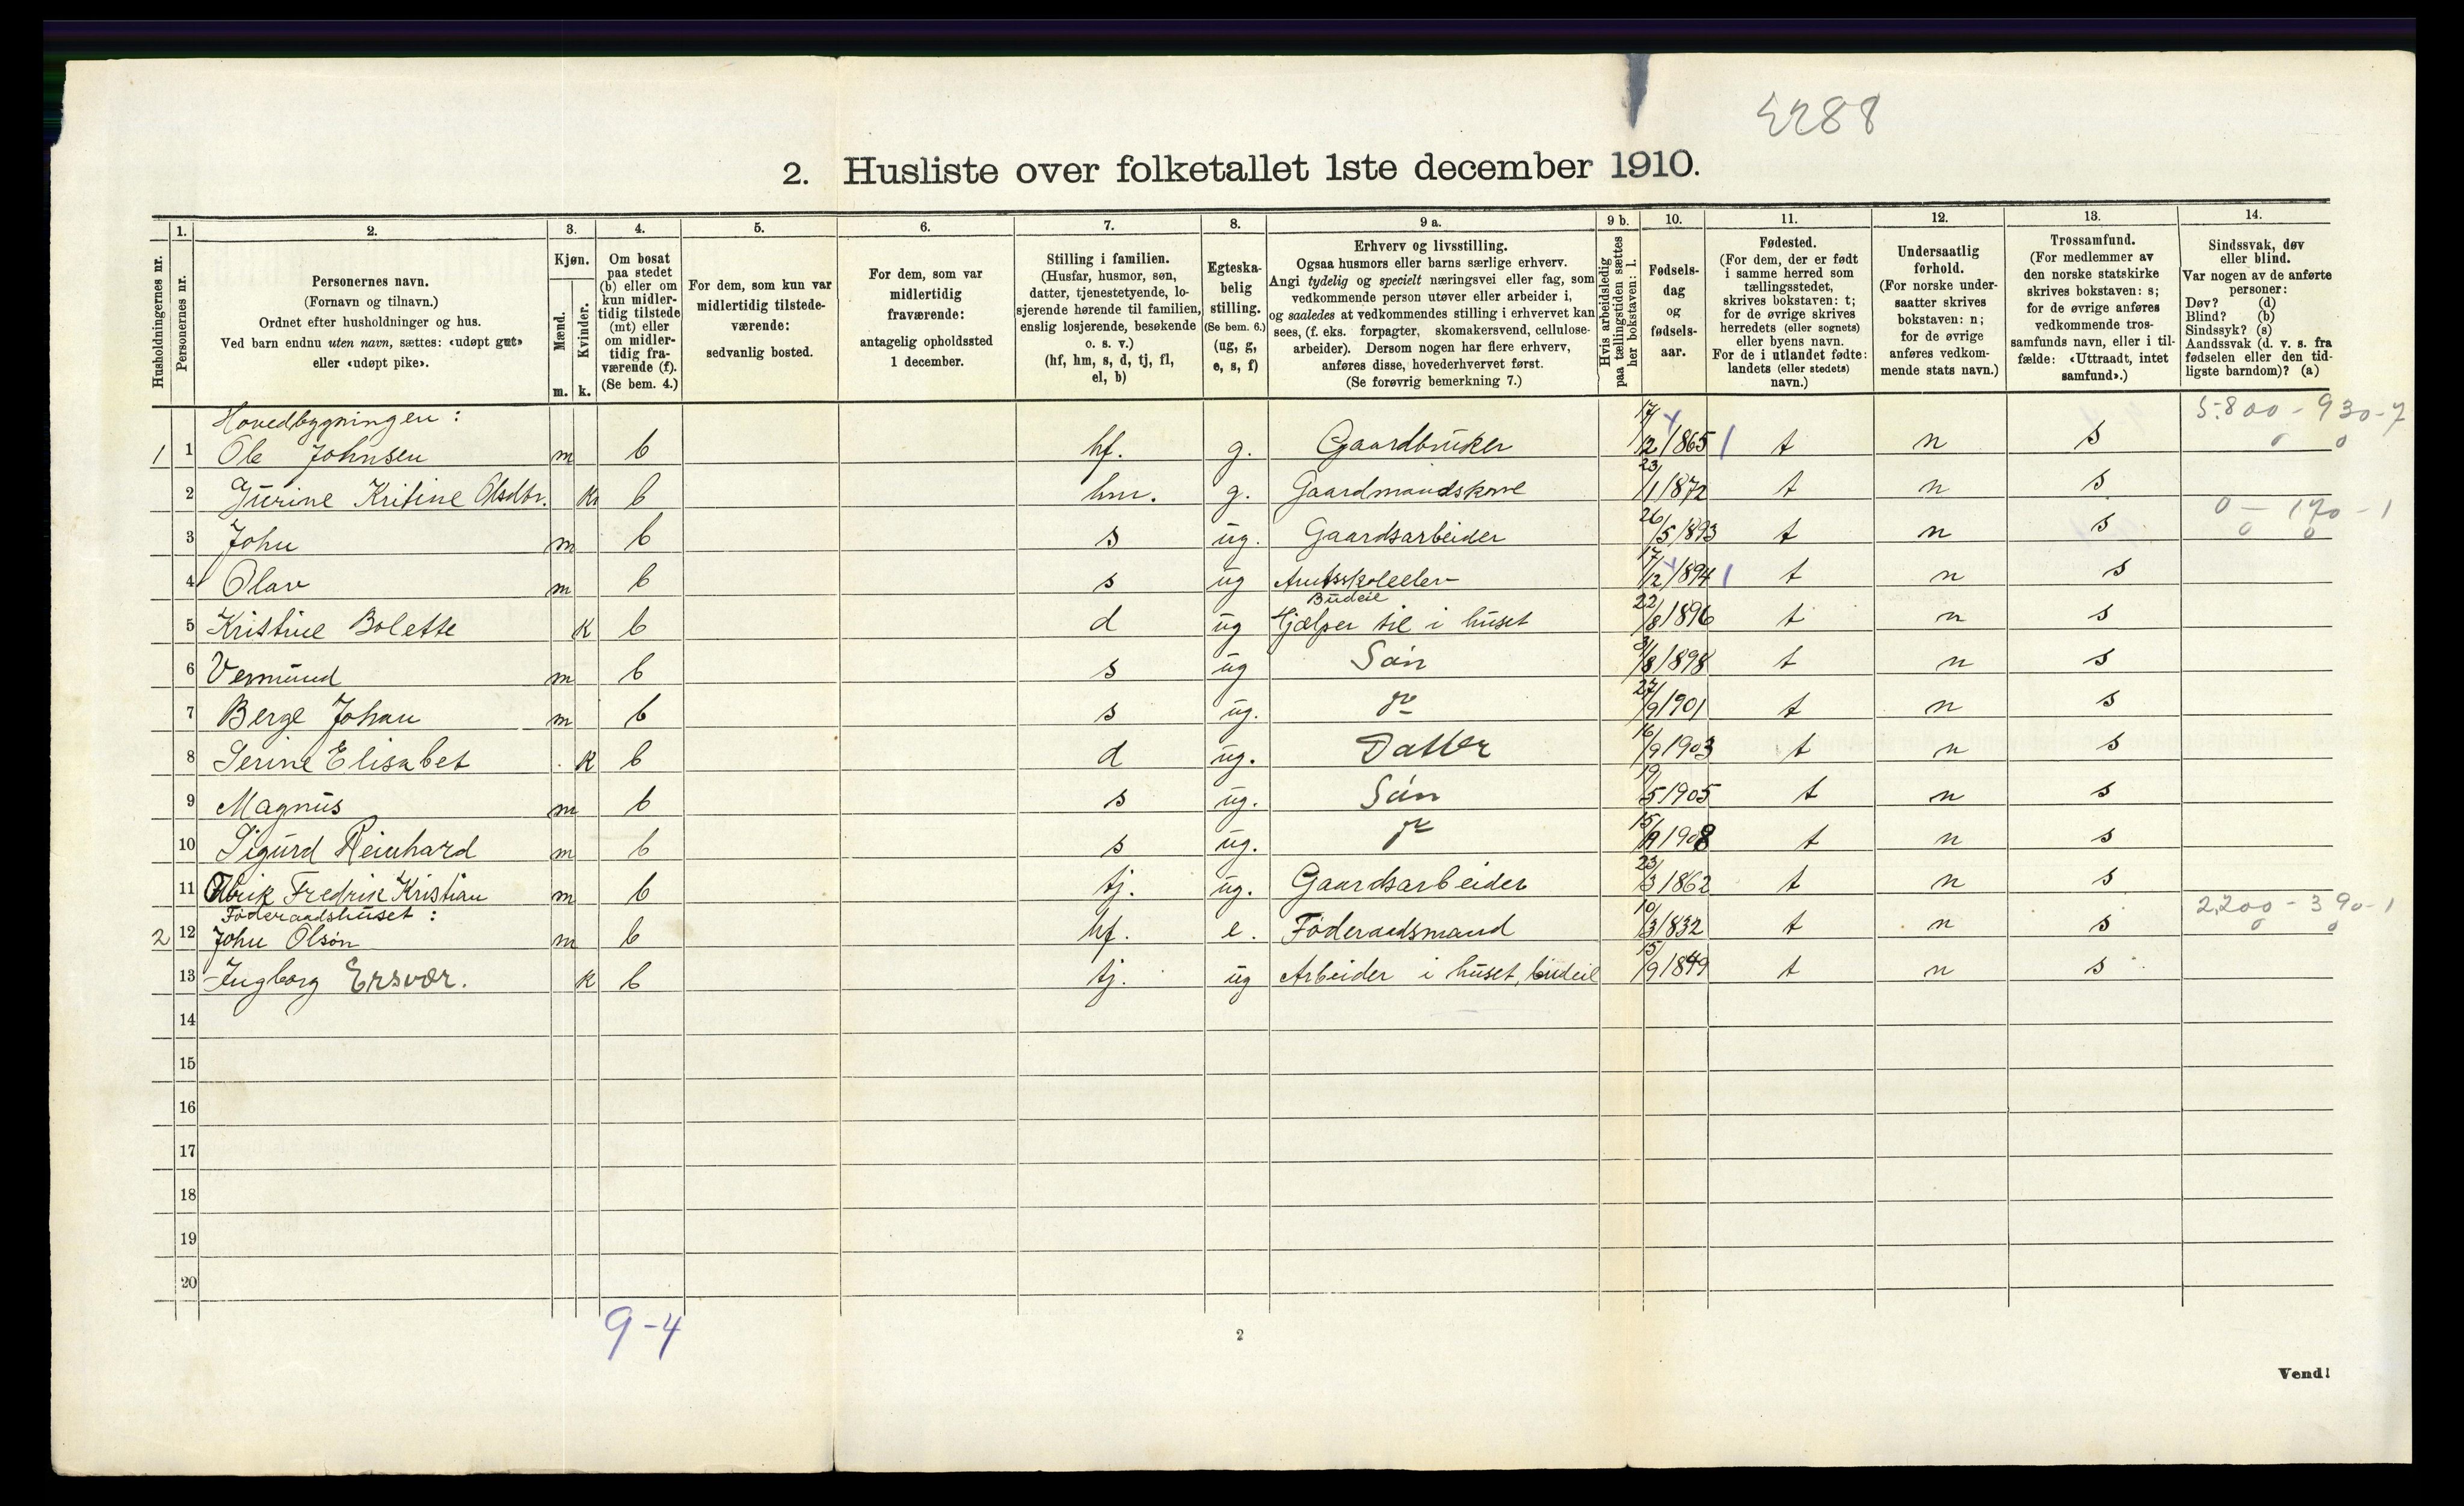 2. Husliste over folketallet 1ste december 1910.
Husholdningernes nr.
1.
Personernes nr.
2.
Personernes navn.
(Fornavn og tilnavn.)
Ordnet efter husholdninger og hus.
Ved barn endnu uten navn, sættes: «udøpt gut»
eller «udøpt pike».
3.
Kjøn.
Mænd.
Kvinder.
m. k.
4.
Om bosat
paa stedet
(b) eller om
kun midler-
tidig tilstede
(mt) eller
om midler-
tidig fra-
værende (f).
(Se bem. 4.)
5.
For dem, som kun var
midlertidig tilstede-
værende:
sedvanlig bosted.
6.
For dem, som var
midlertidig
fraværende:
antagelig opholdssted
1 december.
7.
Stilling i familien.
(Husfar, husmor, søn,
datter, tjenestetyende, lo-
sjerende hørende til familien,
enslig losjerende, besøkende
o. s. v.)
(hf, hm, s, d, tj, fl,
el, b)
8.
Egteska-
belig
stilling.
(Se bem. 6.)
(ug, g,
e, s, f)
9 a.
Erhverv og livsstilling.
Ogsaa husmors eller barns særlige erhverv.
Angi tydelig og specielt næringsvei eller fag, som
vedkommende person utøver eller arbeider i,
og saaledes at vedkommendes stilling i erhvervet kan
sees, (f. eks. forpagter, skomakersvend, cellulose-
arbeider). Dersom nogen har flere erhverv,
anføres disse, hovederhvervet først.
(Se forøvrig bemerkning 7.)
9 b.
Hvis arbeidsledig
paa tællingstiden sættes
her bokstaven: l.
10.
Fødsels-
dag
og
fødsels-
aar.
11.
Fødested.
(For dem, der er født
i samme herred som
tællingsstedet,
skrives bokstaven: t;
for de øvrige skrives
herredets (eller sognets)
eller byens navn.
For de i utlandet fødte:
landets (eller stedets)
navn.)
12.
Undersaatlig
forhold.
(For norske under-
saatter skrives
bokstaven: n;
for de øvrige
anføres vedkom-
mende stats navn.)
13.
Trossamfund.
(For medlemmer av
den norske statskirke
skrives bokstaven: s;
for de øvrige anføres
vedkommende tros-
samfunds navn, eller i til-
fælde: «Uttraadt, intet
samfund».)
14.
Sindssvak, døv
eller blind.
Var nogen av de anførte
personer:
Døv? (d)
Blind? (b)
Sindssyk? (s)
Aandssvak (d. v. s. fra
fødselen eller den tid-
ligste barndom)? (a)
Hovedbygningen:
5.800 - 930-7
1 1 Ole Johnsen m b hf. g. Gaardbruker 17/12 1865 t n s 0 0
2 Jurine Kritine Olsdtr. k b hm. g. Gaardmandskone 23/1 1872 t n s
0 - 170 - 1
3 John m b s ug. Gaardsarbeider 26/5 1893 t n s 0 0
4 Olav m b s ug Amtsskoleelev 17/12 1894 t n s
Budeie
5 Kristine Bolette k b d ug Hjælper til i huset 22/8 1896 t n s
6 Vermund m b s ug Søn 31/8 1898 t n s
7 Berge Johan m b s ug. do 27/9 1901 t n s
8 Serine Elisabet k b d ug. Datter 16/9 1903 t n s
9 Magnus m b s ug. Søn 19/5 1905 t n s
10 Sigurd Reinhard m b s ug. do 15/ 1908 t n s
11 Fredrik Kristian m b tj. ug. Gaardsarbeider 23/3 1862 t n s
Føderaadshuset:
2,200 - 390-1
2 12 John Olsøn m b hf. e. Føderaadsmand 10/3 1832 t n s 0 0
13 Ingborg Ersvær. k b tj. ug Arbeider i huset, budeie 15/9 1849 t n s
14
15
16
17
18
19
20
9-4
2
Vend!